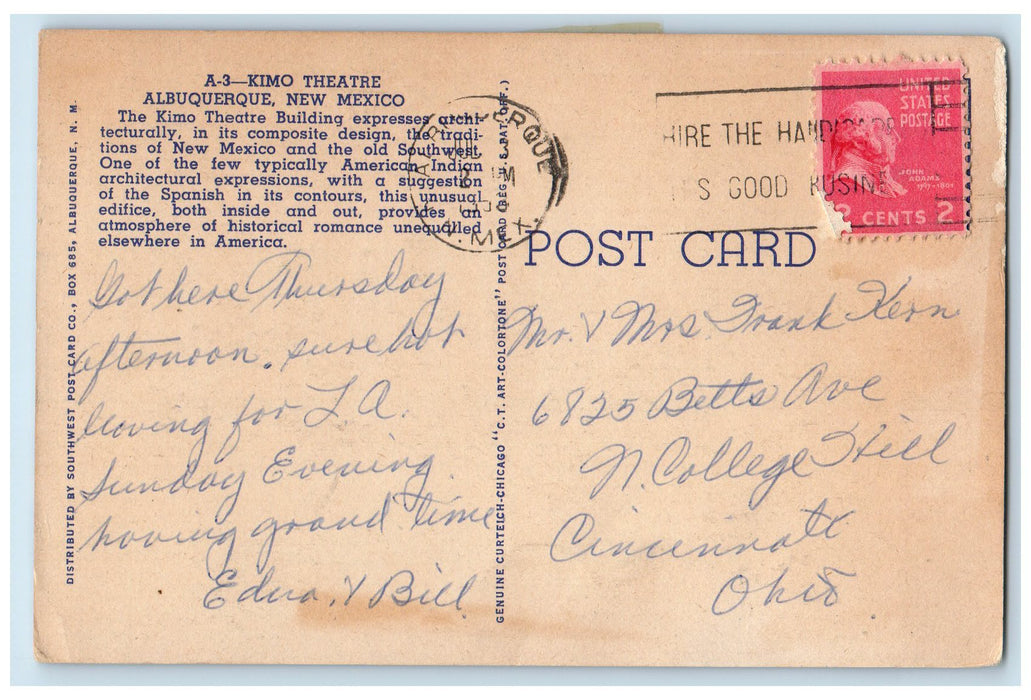 A-3—KIMO THEATRE
ALBUQUERQUE, NEW MEXICO
The Kimo Theatre Building expresses archi-
tecturally, in its composite design, the tradi-
tions of New Mexico and the old Southwest.
One of the few typically American Indian
architectural expressions, with a suggestion
of the Spanish in its contours, this unusual
edifice, both inside and out, provides an
atmosphere of historical romance unequalled
elsewhere in America.
Got here Thursday
afternoon. sure hot
leaving for L A.
Sunday Evening.
having grand time
Edna. & Bill.
DISTRIBUTED BY SOUTHWEST POST CARD CO., BOX 685, ALBUQUERQUE, N. M.
GENUINE CURTEICH-CHICAGO "C. T. ART-COLORTONE" POST CARD (REG. U. S. PAT. OFF.)
ALBUQUERQUE
N. MEX.
HIRE THE HANDICAPP
IT'S GOOD BUSINE
UNITED
STATES
POSTAGE
JOHN
ADAMS
1797-1801
2 CENTS 2
POST CARD
Mr. & Mrs. Frank Kern
6825 Betts Ave
N. College Hill
Cincinnati
Ohio.